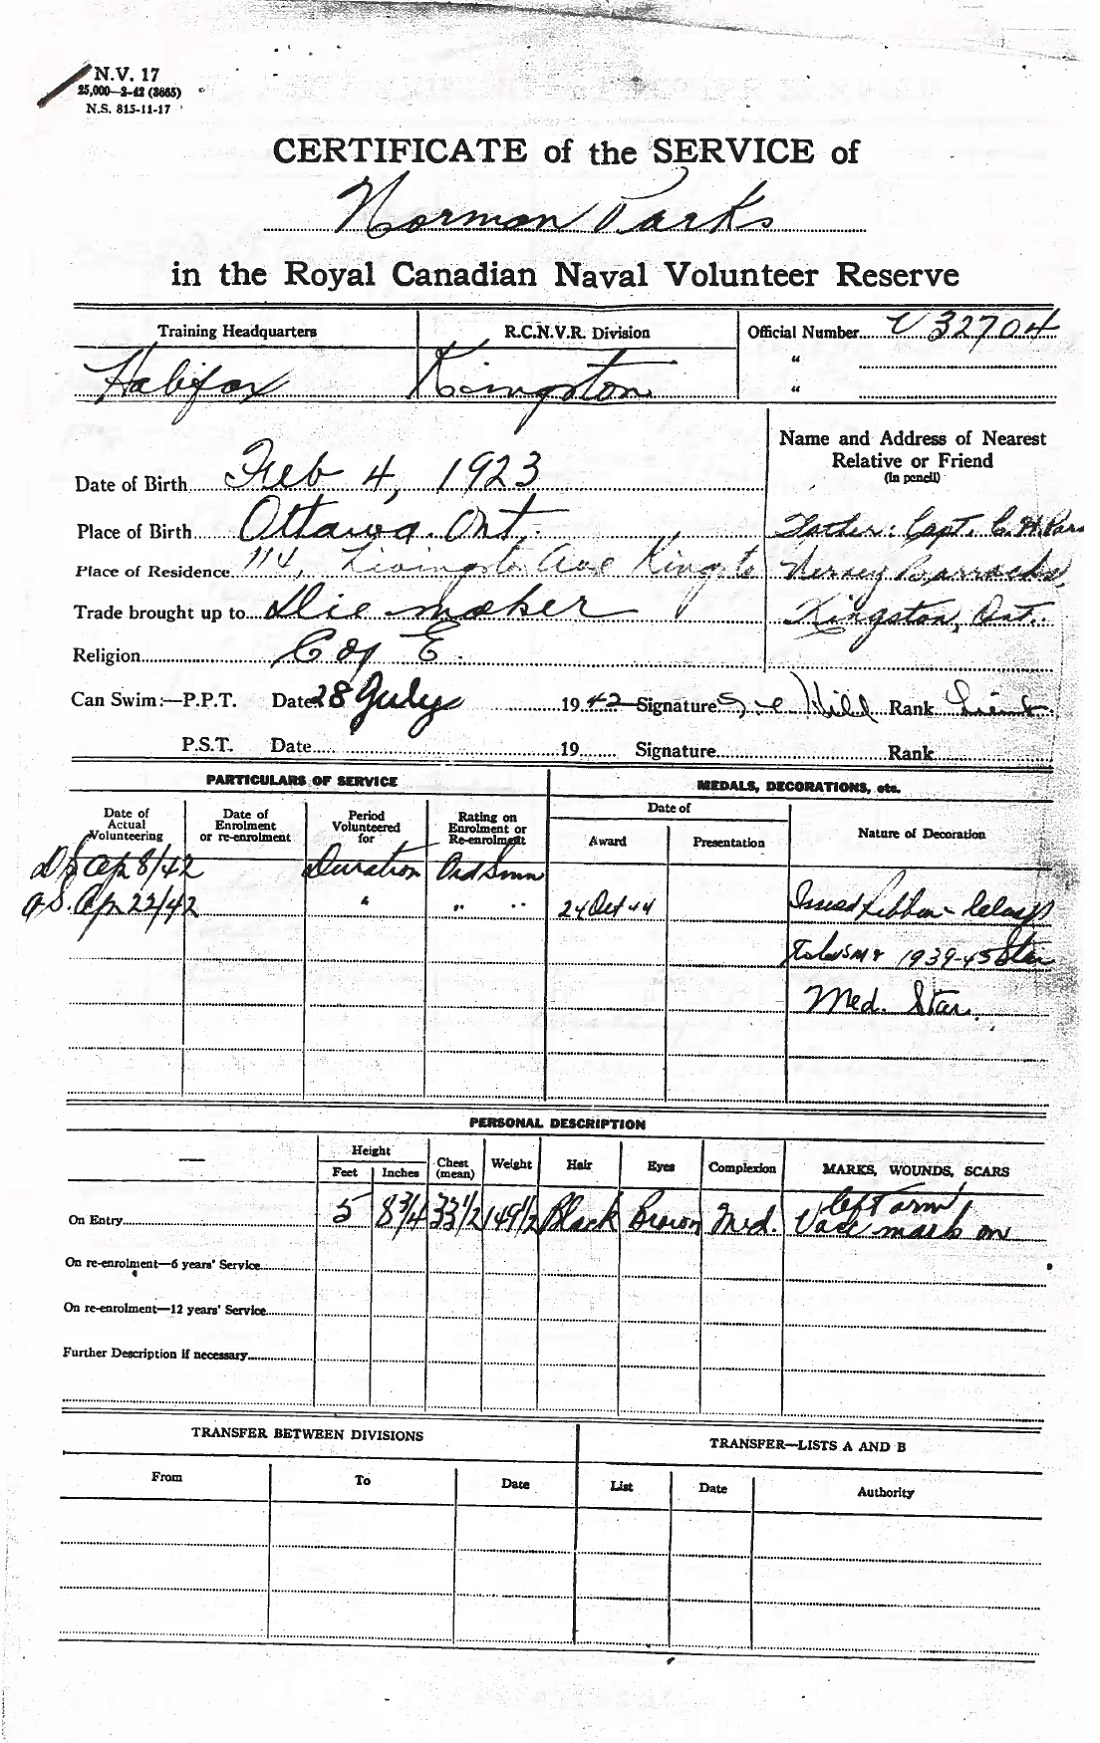 N.V. 17
25,000—2-42 (3665)
N.S. 815-11-17
CERTIFICATE of the SERVICE of
Norman Parks
in the Royal Canadian Naval Volunteer Reserve
Training Headquarters R.C.N.V.R. Division Official Number V 32704
Halifax Kingston "
"
Name and Address of Nearest Relative or Friend
(in pencil)
Date of Birth Feb 4, 1923
Place of Birth Ottawa. Ont. Father: Capt. C. H. Par
Place of Residence 114, Livingston Ave Kingsto Barracks,
Trade brought up to Die maker Kingston, Ont.
Religion C of E.
Can Swim:—P.P.T. Date 28 July 1942 Signature Hill Rank Lieut.
P.S.T. Date 19 Signature Rank
PARTICULARS OF SERVICE MEDALS, DECORATIONS, etc.
Date of Actual Volunteering Date of Enrolment or re-enrolment Period Volunteered for Rating on Enrolment or Re-enrolment Date of Award Presentation Nature of Decoration
Ap 8/42 Duration Ord Smn
A.S. Ap 22/42 " " " 24 Oct 44 Issued Ribbon - Clasp
1939-45 Star
Med. Star.
PERSONAL DESCRIPTION
— Height Chest (mean) Weight Hair Eyes Complexion MARKS, WOUNDS, SCARS
Feet Inches
left arm
On Entry 5 8 3/4 33 1/2 149 1/2 Black Brown Med. Vacc mark on
On re-enrolment—6 years' Service
On re-enrolment—12 years' Service
Further Description if necessary
TRANSFER BETWEEN DIVISIONS TRANSFER—LISTS A AND B
From To Date List Date Authority